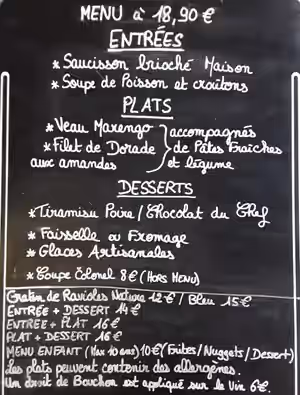 MENU à 18,90 €
ENTRÉES
* Saucisson brioché Maison
* Soupe de Poisson et croûtons
PLATS
* Veau Marengo } accompagnés
* Filet de Dorade de Pâtes Fraîches
aux amandes et légume
DESSERTS
* Tiramisu Poire / Chocolat du Chef
* Faisselle ou Fromage
* Glaces Artisanales
* Coupe Colonel 8€ (HORS MENU)
Gratin de Ravioles Nature 12€ / Bleu 15€
ENTRÉE + DESSERT 14€
ENTRÉE + PLAT 16€
PLAT + DESSERT 16€
MENU ENFANT (Max 10 ans) 10€ (Frites / Nuggets / Dessert)
Les plats peuvent contenir des allergènes.
Un droit de Bouchon est appliqué sur le Vin 6€.